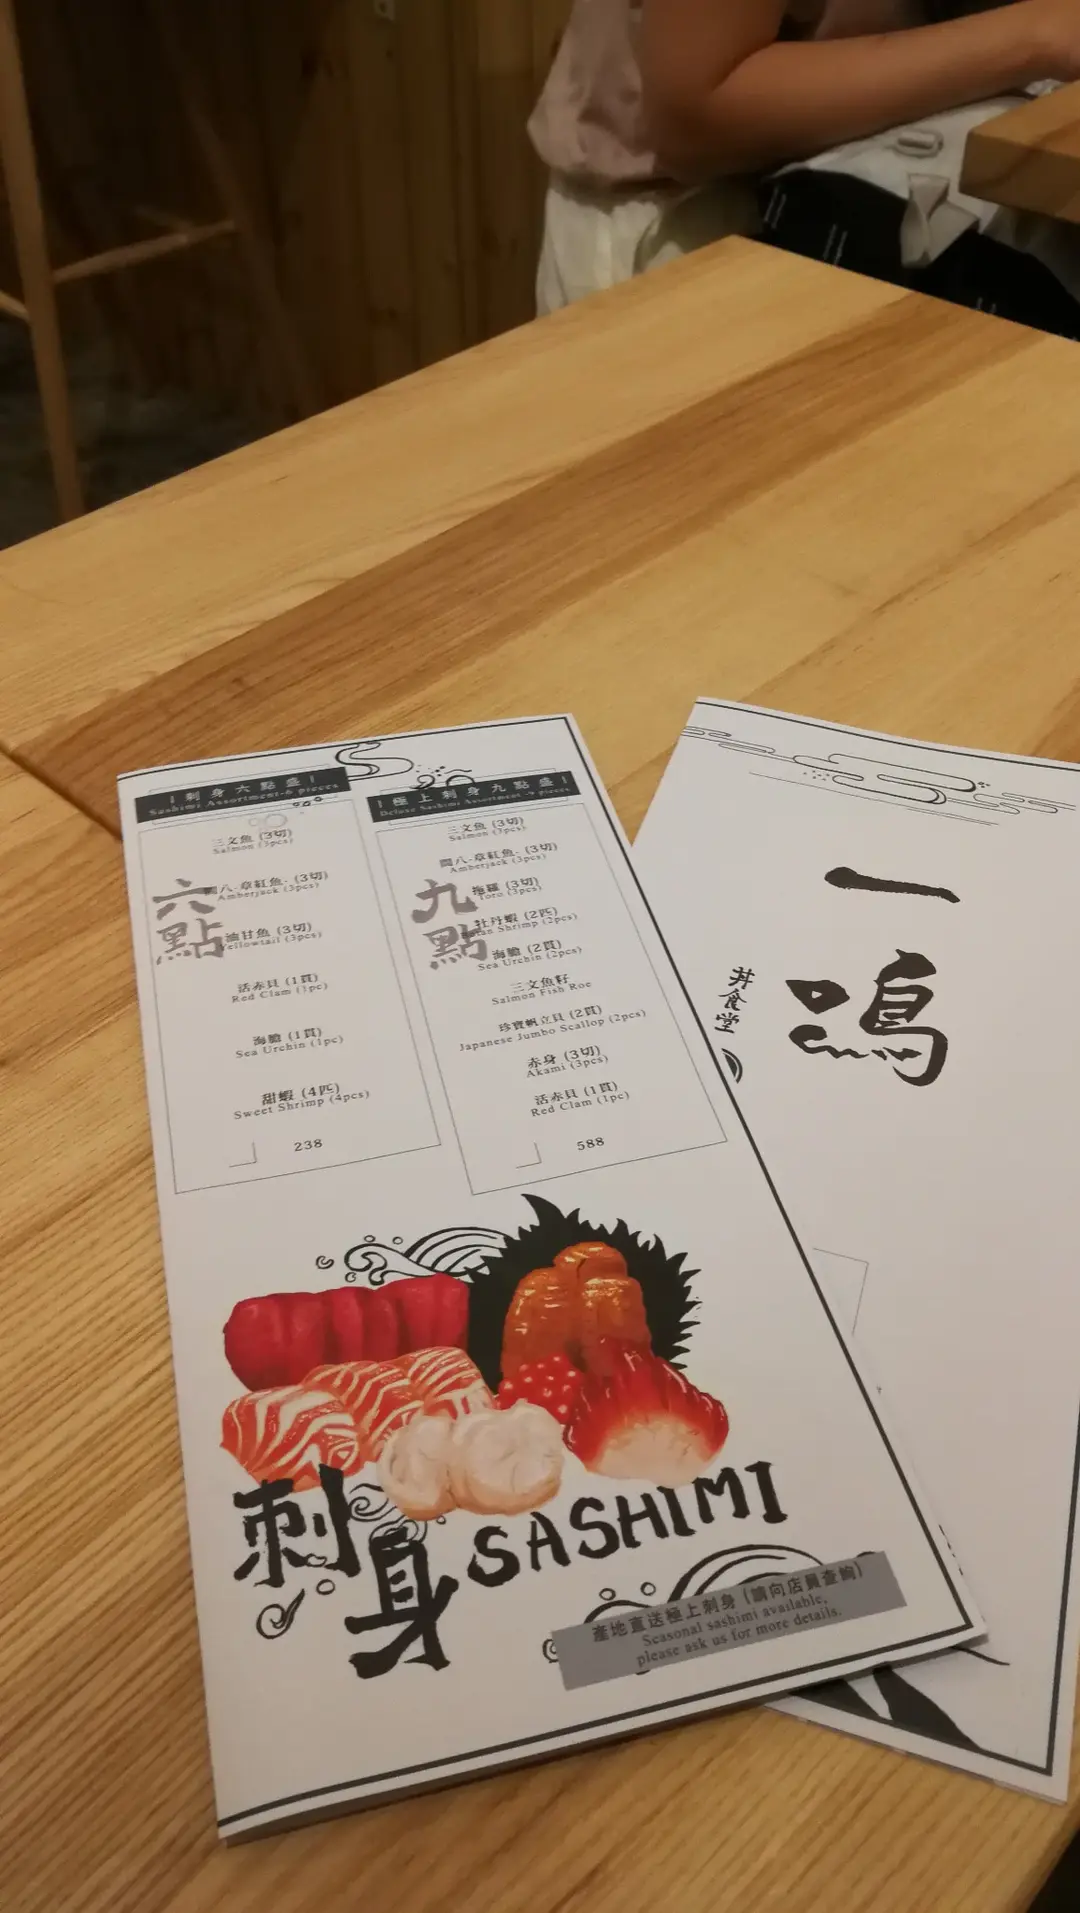 ｜刺身六點盛｜
Sashimi Assortment-6 pieces
六點
三文魚 (3切)
Salmon (3pcs)
間八-章紅魚- (3切)
Amberjack (3pcs)
油甘魚 (3切)
Yellowtail (3pcs)
活赤貝 (1貫)
Red Clam (1pc)
海膽 (1貫)
Sea Urchin (1pc)
甜蝦 (4匹)
Sweet Shrimp (4pcs)
238
｜極上刺身九點盛｜
Deluxe Sashimi Assortment-9 pieces
九點
三文魚 (3切)
Salmon (3pcs)
間八-章紅魚- (3切)
Amberjack (3pcs)
拖羅 (3切)
Toro (3pcs)
牡丹蝦 (2匹)
Botan Shrimp (2pcs)
海膽 (2貫)
Sea Urchin (2pcs)
三文魚籽
Salmon Fish Roe
珍寶帆立貝 (2貫)
Japanese Jumbo Scallop (2pcs)
赤身 (3切)
Akami (3pcs)
活赤貝 (1貫)
Red Clam (1pc)
588
刺身 SASHIMI
產地直送極上刺身 (請向店員查詢)
Seasonal sashimi available,
please ask us for more details.
一鳴
丼食堂